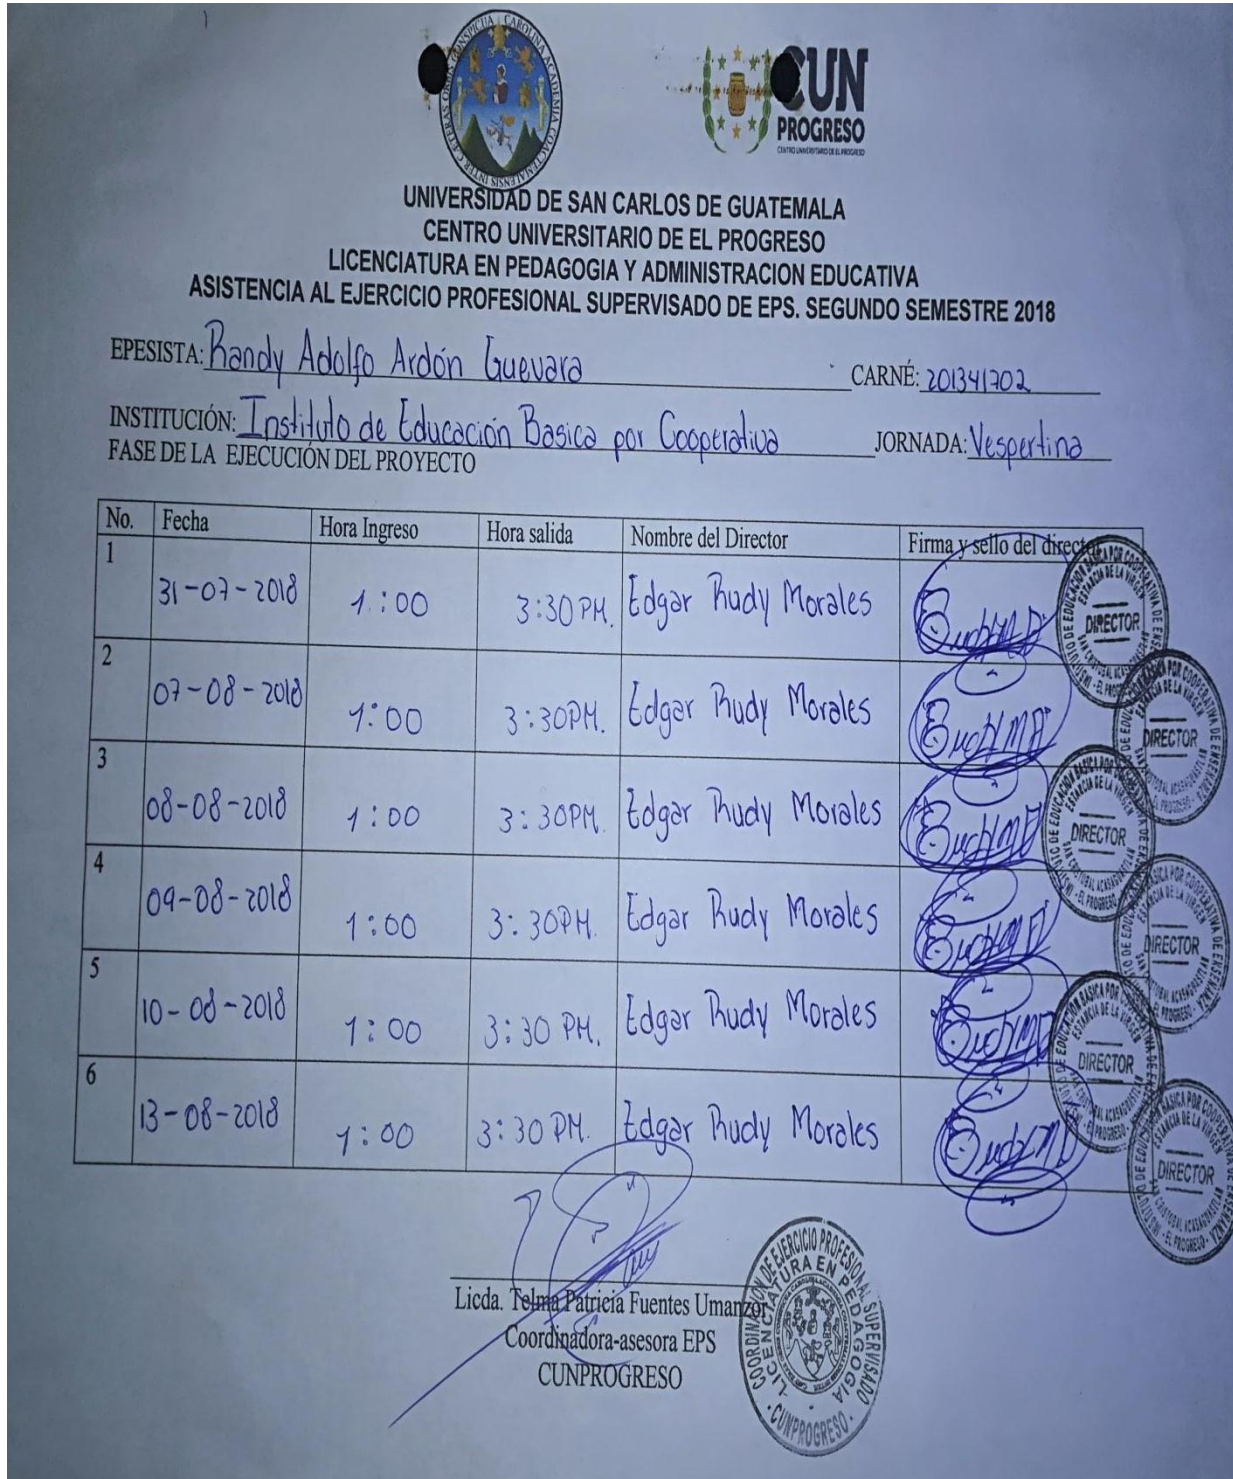 CUN
PROGRESO
CENTRO UNIVERSITARIO DE EL PROGRESO
UNIVERSIDAD DE SAN CARLOS DE GUATEMALA
CENTRO UNIVERSITARIO DE EL PROGRESO
LICENCIATURA EN PEDAGOGIA Y ADMINISTRACION EDUCATIVA
ASISTENCIA AL EJERCICIO PROFESIONAL SUPERVISADO DE EPS. SEGUNDO SEMESTRE 2018
EPESISTA: Randy Adolfo Ardón Guevara CARNÉ: 201341702
INSTITUCIÓN: Instituto de Educación Basica por Cooperativa JORNADA: Vespertina
FASE DE LA EJECUCIÓN DEL PROYECTO
No. Fecha Hora Ingreso Hora salida Nombre del Director Firma y sello del director
1 31-07-2018 1:00 3:30 PM. Edgar Rudy Morales DIRECTOR
2 07-08-2018 1:00 3:30 PM. Edgar Rudy Morales DIRECTOR
3 08-08-2018 1:00 3:30 PM. Edgar Rudy Morales DIRECTOR
4 09-08-2018 1:00 3:30 PM. Edgar Rudy Morales DIRECTOR
5 10-08-2018 1:00 3:30 PM. Edgar Rudy Morales DIRECTOR
6 13-08-2018 1:00 3:30 PM. Edgar Rudy Morales DIRECTOR
Licda. Telma Patricia Fuentes Umanzor
Coordinadora-asesora EPS
CUNPROGRESO
COORDINACION DE EJERCICIO PROFESIONAL SUPERVISADO
LICENCIATURA EN PEDAGOGIA
CUNPROGRESO